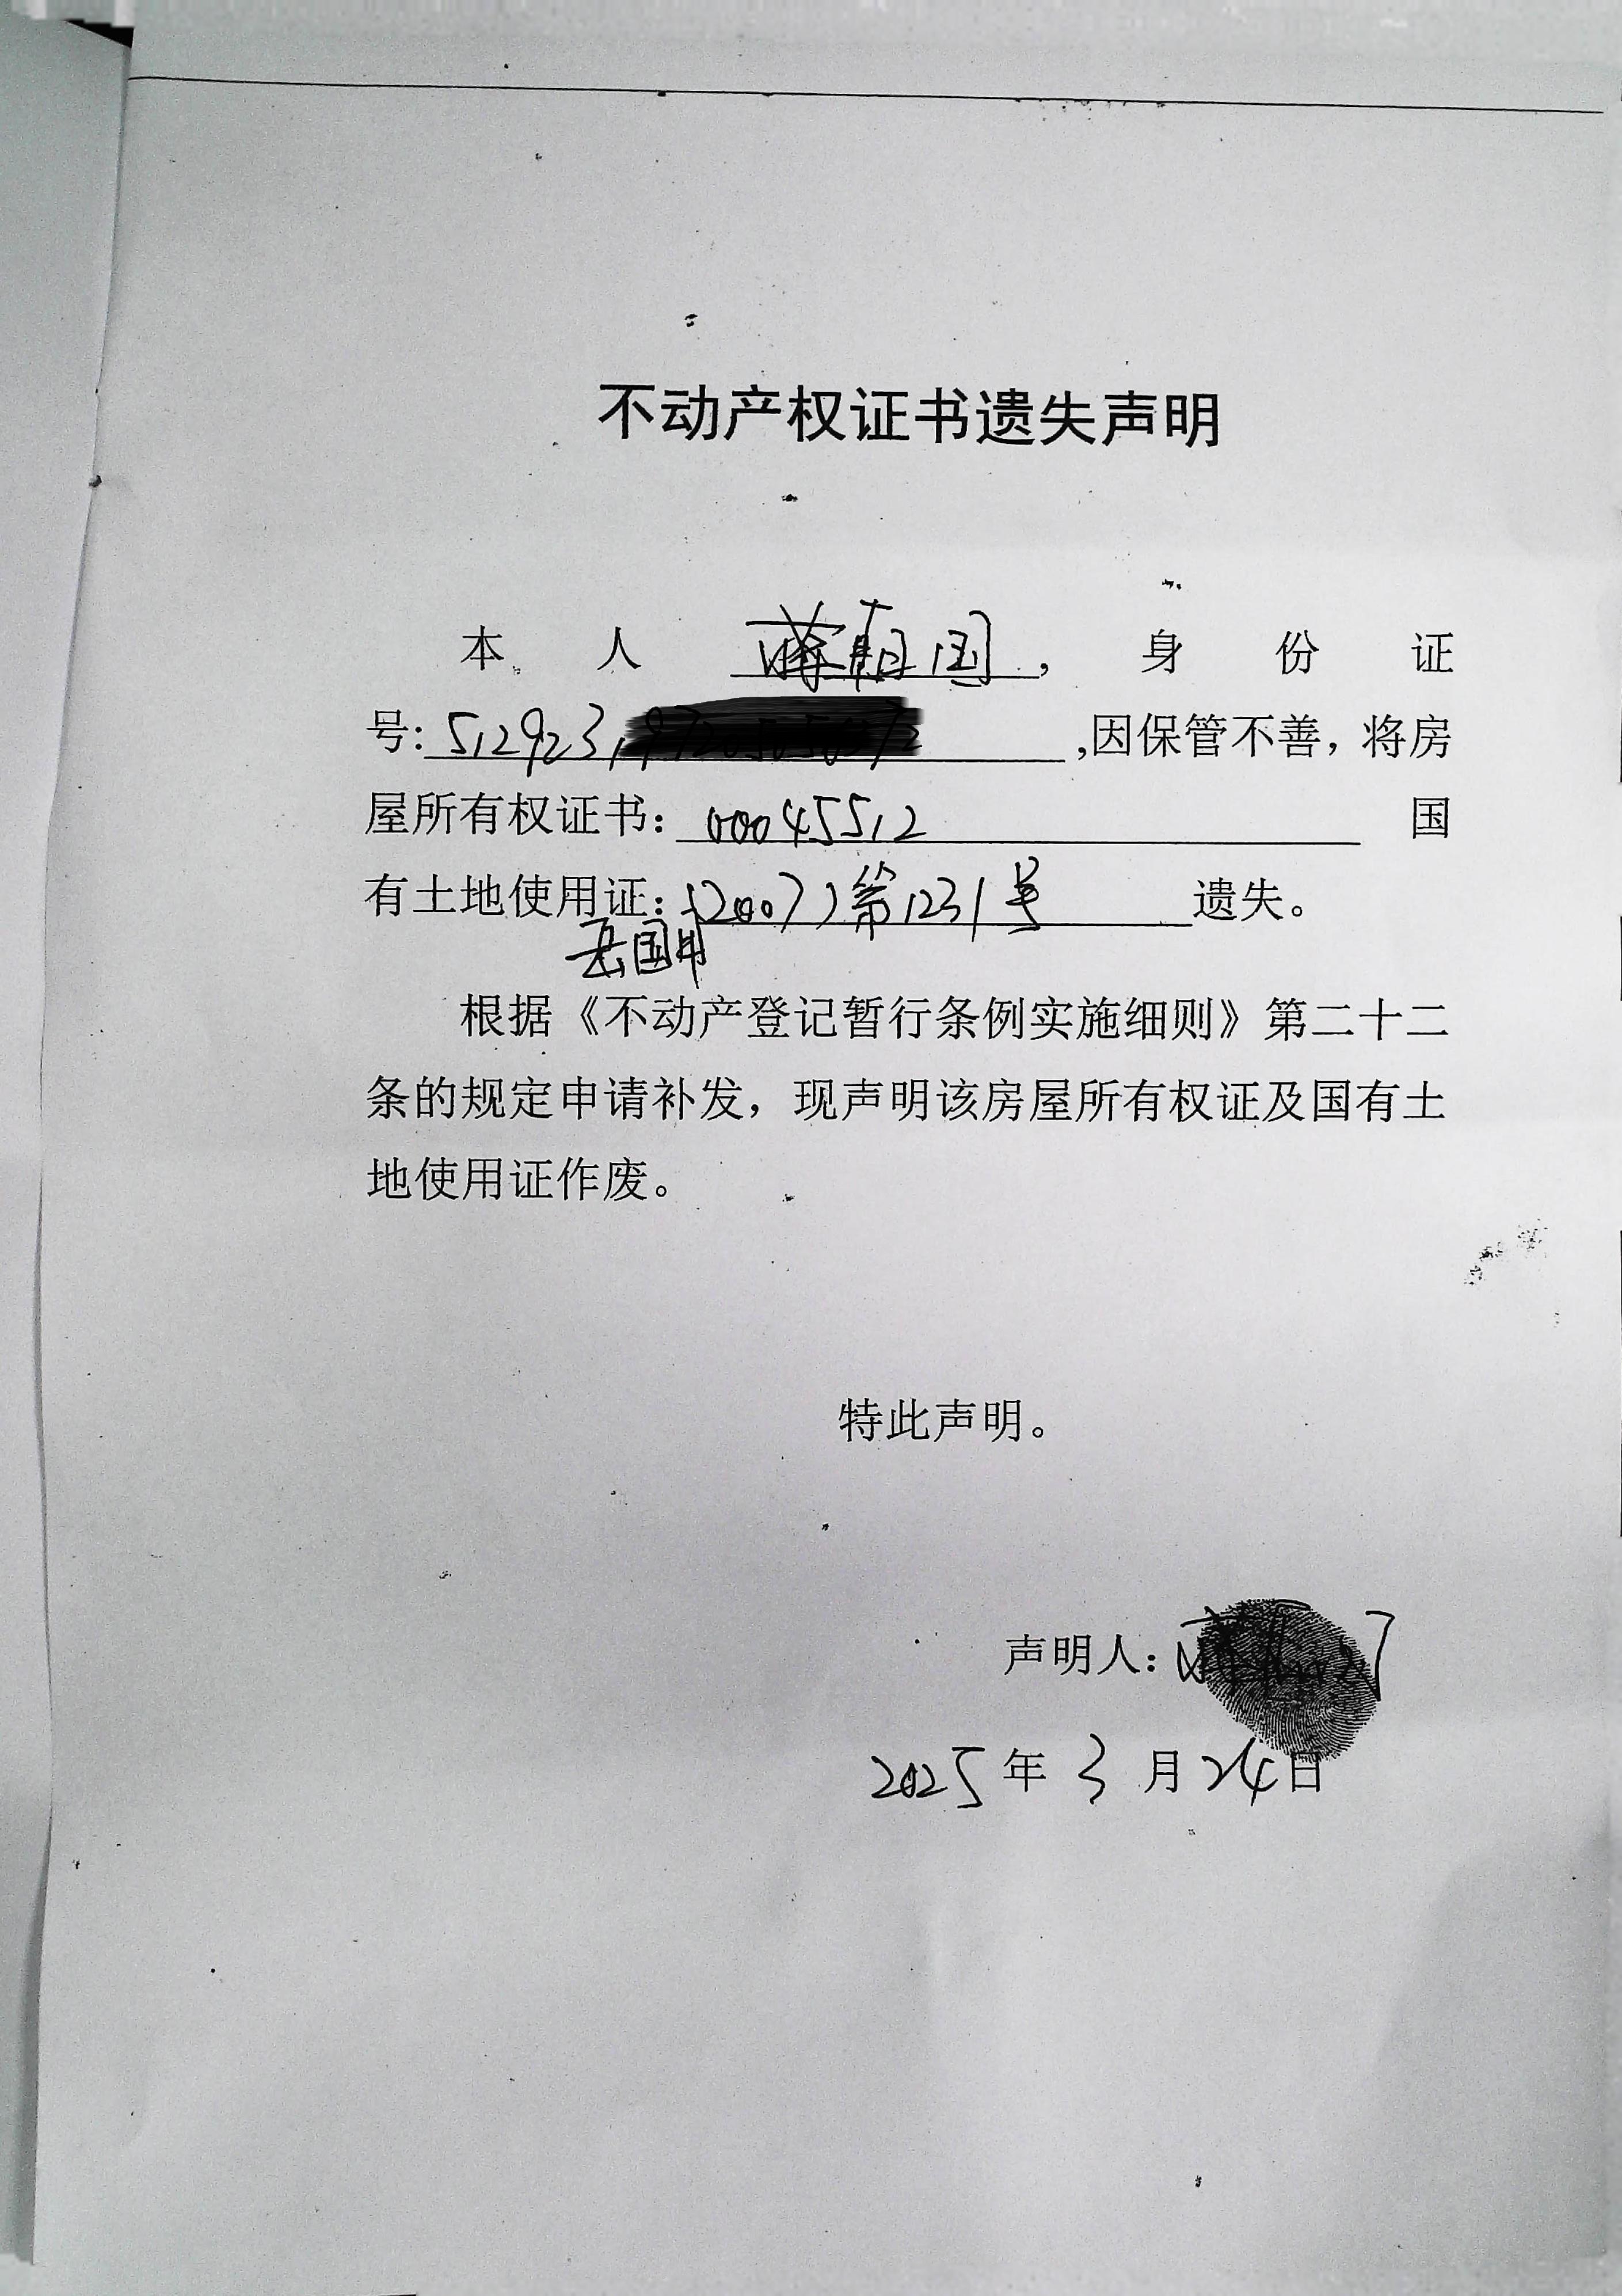 不动产权证书遗失声明
本人 蒋朝国，身份证
号：512923，因保管不善，将房
屋所有权证书：00045512 国
有土地使用证：(2007)第1231号 遗失。
岳国用
根据《不动产登记暂行条例实施细则》第二十二
条的规定申请补发，现声明该房屋所有权证及国有土
地使用证作废。
特此声明。
声明人：
2025年3月24日